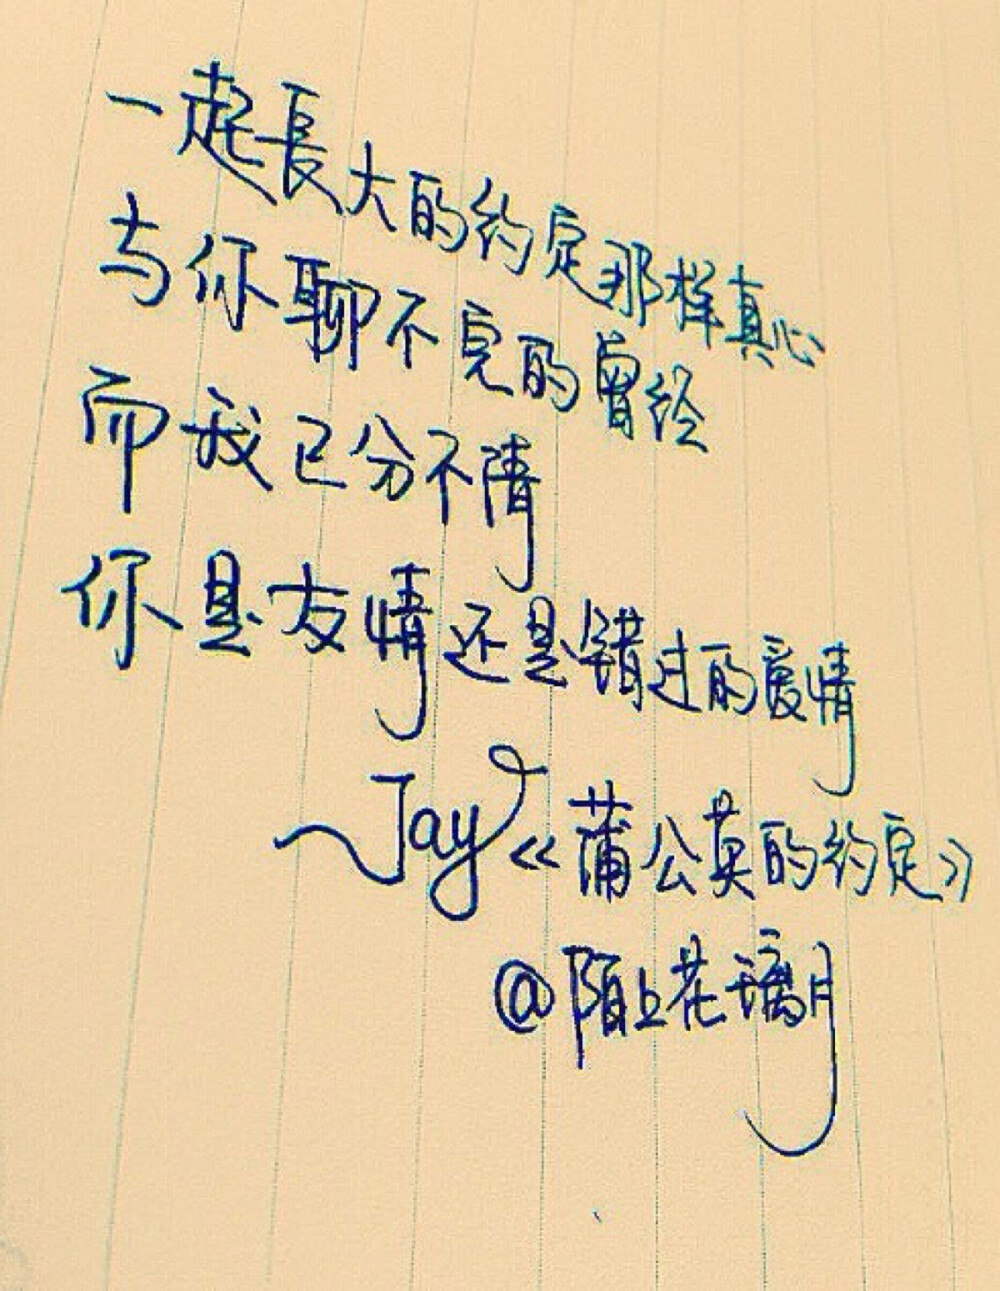 一起長大的约定那样真心
与你聊不完的曾经
而我已分不清
你是友情还是错过的爱情
~Jay《蒲公英的约定》
@陌上花璃月